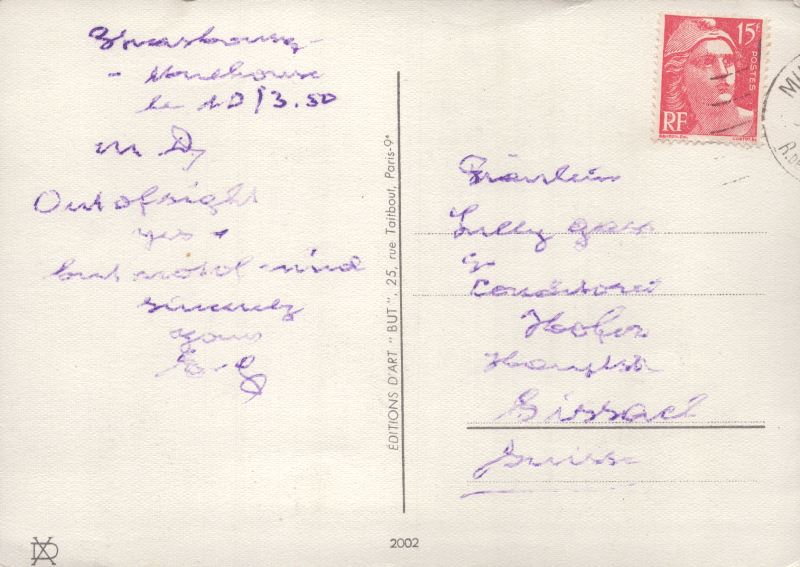 Strasbourg -
- Mulhouse
le 10/3.50
M. D,
Out of sight
yes
but not of mind
sincerely
yours
EDITIONS D'ART "BUT". 25, rue Taitbout, Paris-9e
15F
POSTES
RF
Fräulein
Lilly Gass
Conditorei
Hofer
Hauptstr
Sissach
Suisse
2002